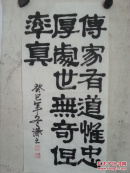 傳家有道惟忠
厚處世無奇但
率真
癸巳年冬